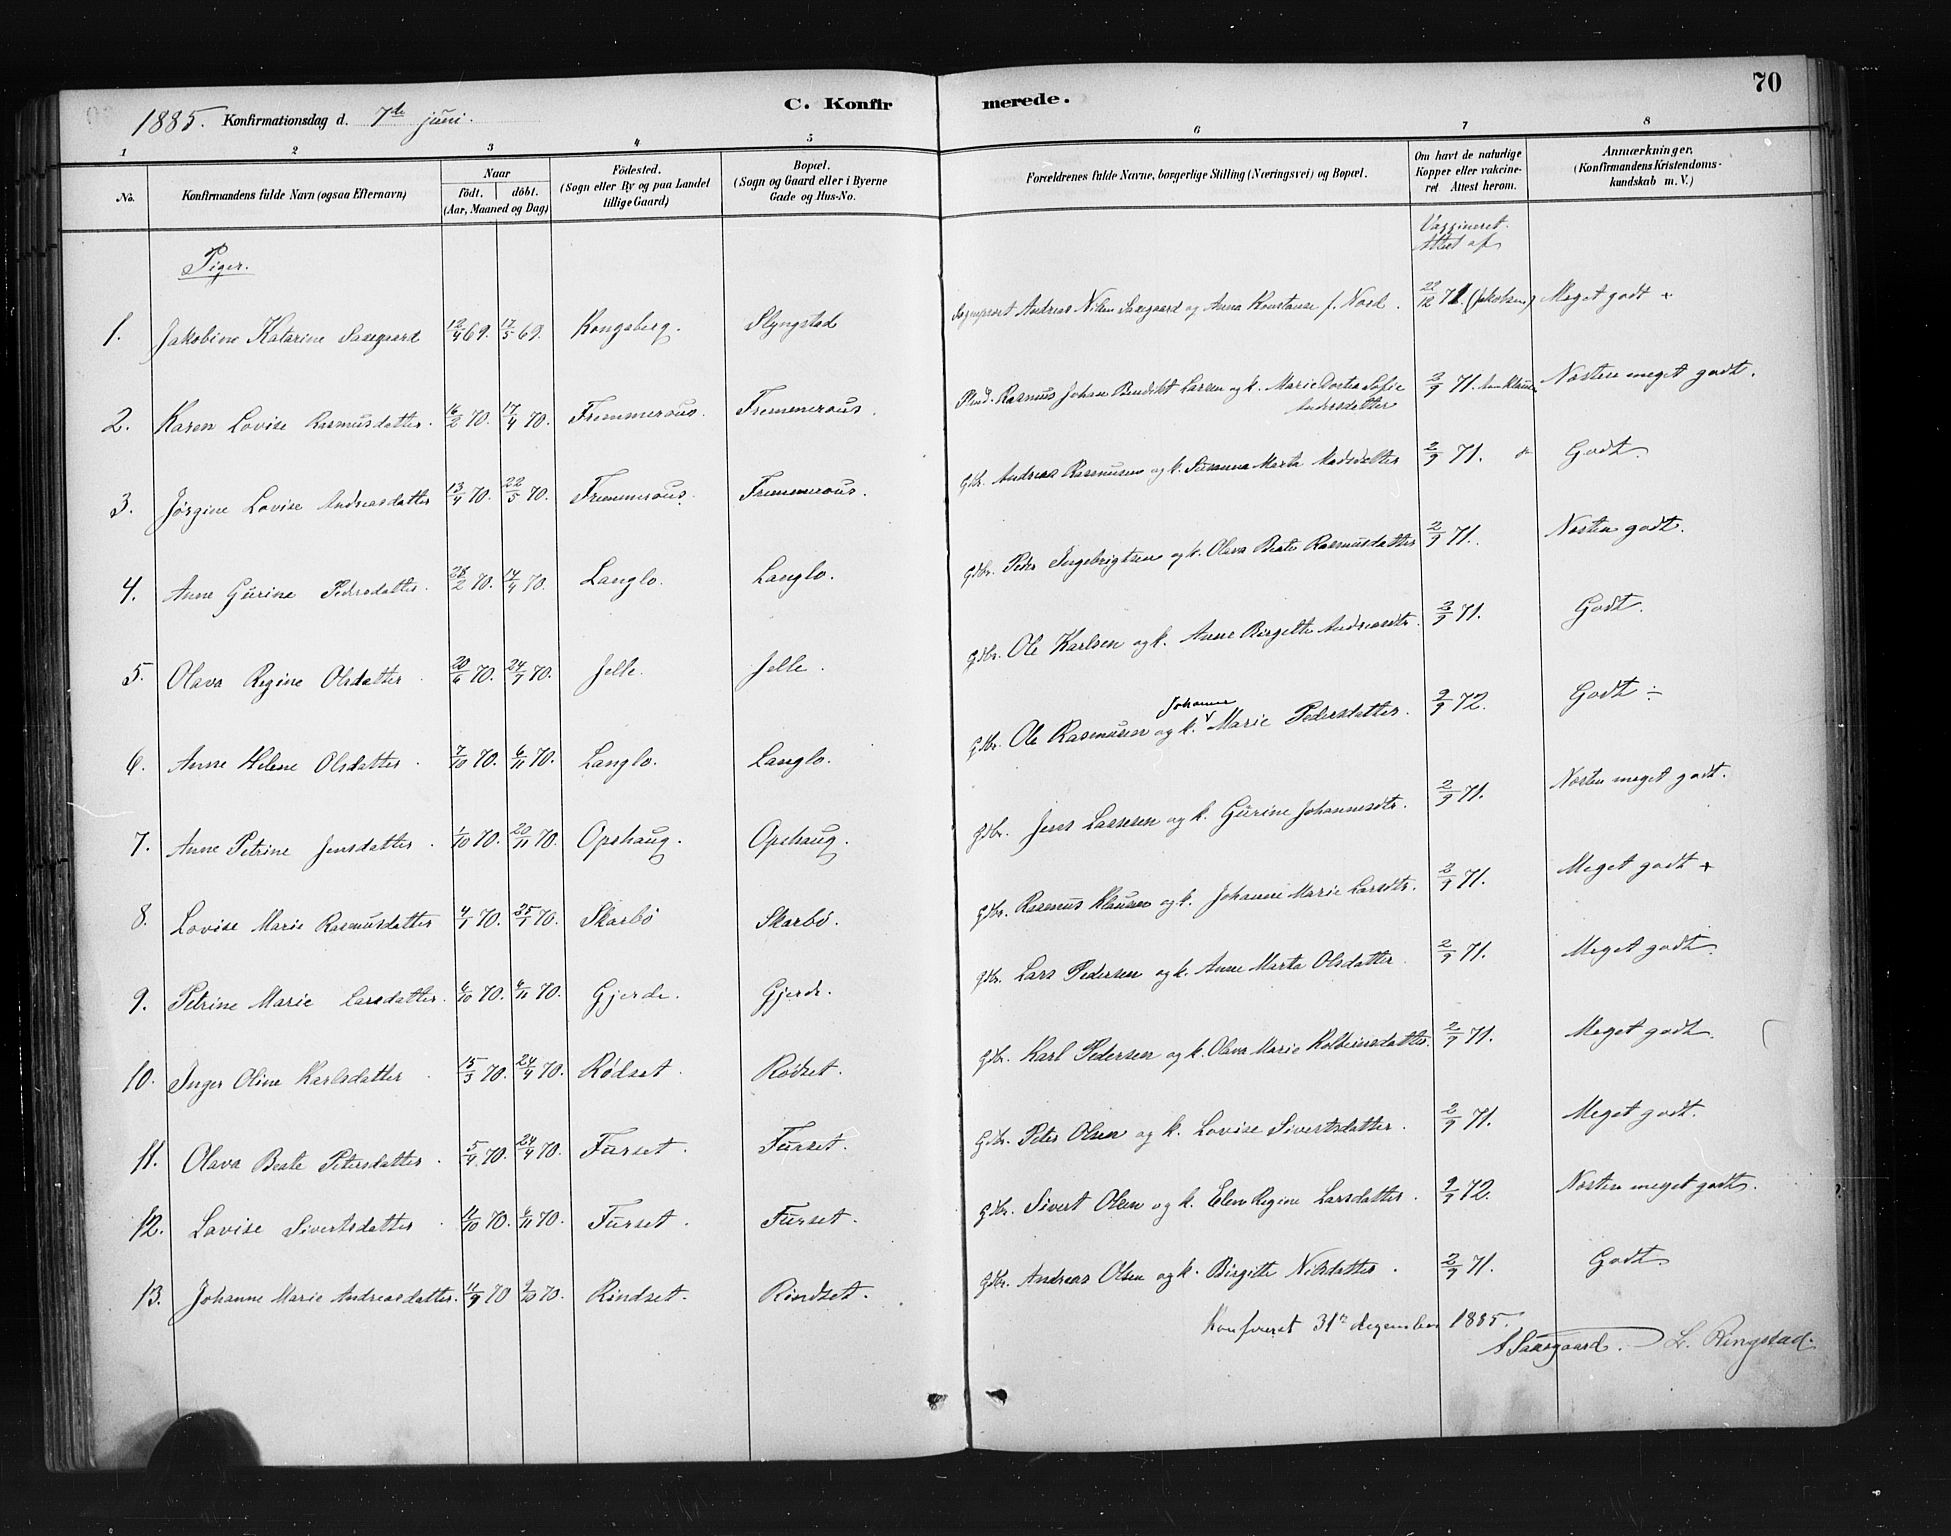 70
1885. Konfirmationsdag d. 7de juni. C. Konfirmerede.
1 2 3 4 5 6 7 8
No. Konfirmandens fulde Navn (ogsaa Efternavn) Naar födt. döbt. (Aar, Maaned og Dag) Födested. (Sogn eller By og paa Landet tillige Gaard) Bopæl. (Sogn og Gaard eller i Byerne Gade og Hus-No. Forældrenes fulde Navne, borgerlige Stilling (Næringsvei) og Bopæl. Om havt de naturlige Kopper eller vakcineret. Attest herom. Anmærkninger, (Konfirmandens Kristendomskundskab m. V.)
Vaxsineret. Attest af
Piger.
1. Jakobine Katarine Saxegaard 12/4 69. 17/5 69. Kongsberg. Slyngstad Sogneprest Andreas Nilsen Saxegaard og Anna Konstanse f. Nord. 22/12 71. (Jakobsen) Meget godt +
2. Karen Lovise Rasmusdatter. 16/2 70. 17/4 70. Fremmerous. Fremmerous. Rasmus Johan Bendikt Larsen og k. Marie Dortea Sofie Andersdatter 2/9 71. Nesten meget godt.
3. Jørgine Lovise Andreasdatter 13/4 70. 22/5 70. Fremmerous. Fremmerous. Gbr. Andreas Rasmusen og k. Susanna Marta Madsdatter 2/9 71. Godt
4. Anne Gurine Pedersdatter. 28/2 70. 17/4 70. Langlo. Langlo. Gbr. Peder Ingebrigtsen og k. Olava Beate Rasmusdatter 2/9 71. Nesten godt.
5. Olava Regine Olsdatter. 20/6 70. 24/7 70. Jelle. Jelle. Gbr. Ole Karlsen og k. Anne Birgitte Andreasdtr. 2/9 71. Godt.
6. Anne Helene Olsdatter. 7/10 70. 6/11 70. Langlo. Langlo. Gbr. Ole Rasmusen og k. Johanne Marie Pedersdatter. 2/9 72. Godt ÷
7. Anne Petrine Jensdatter. 1/10 70. 20/11 70. Opshaug. Opshaug. Gbr. Jens Lassesen og k. Gurine Johannesdtr. 2/9 71. Nesten meget godt.
8. Lovise Marie Rasmusdatter 70. 70. Skarbø Skarbø. Gbr. Rasmus Klausen og k. Johanne Marie Larsdtr. 2/9 71. Meget godt +
9. Petrine Marie Larsdatter. 70. 6/11 70. Gjerde. Gjerde. Gbr. Lars Pedersen og k. Anne Marta Olsdatter. 2/9 71. Meget godt.
10. Inger Oline Karlsdatter 15/3 70. 24/4 70. Rødset. Rødset. Gbr. Karl Pedersen og k. Olava Marie Kolbeinsdatter. 2/9 71. Meget godt.
11. Olava Beate Petersdatter. 5/4 70. 24/4 70. Furset. Furset. Gbr. Peter Olsen og k. Lovise Sivertsdatter. 2/9 71. Meget godt.
12. Lovise Sivertsdatter 70. 6/11 70. Furset. Furset. Gbr. Sivert Olsen og k. Elen Regine Larsdatter. 2/9 72. Nesten meget godt.
13. Johanne Marie Andreasdatter. 70 2/10 70. Rindset. Rindset. Gbr. Andreas Olsen og k. Birgitte Nilsdatter. 2/9 71. Godt
Konfereret 31te desember 1885.
A Saxegaard. L. Ringstad.